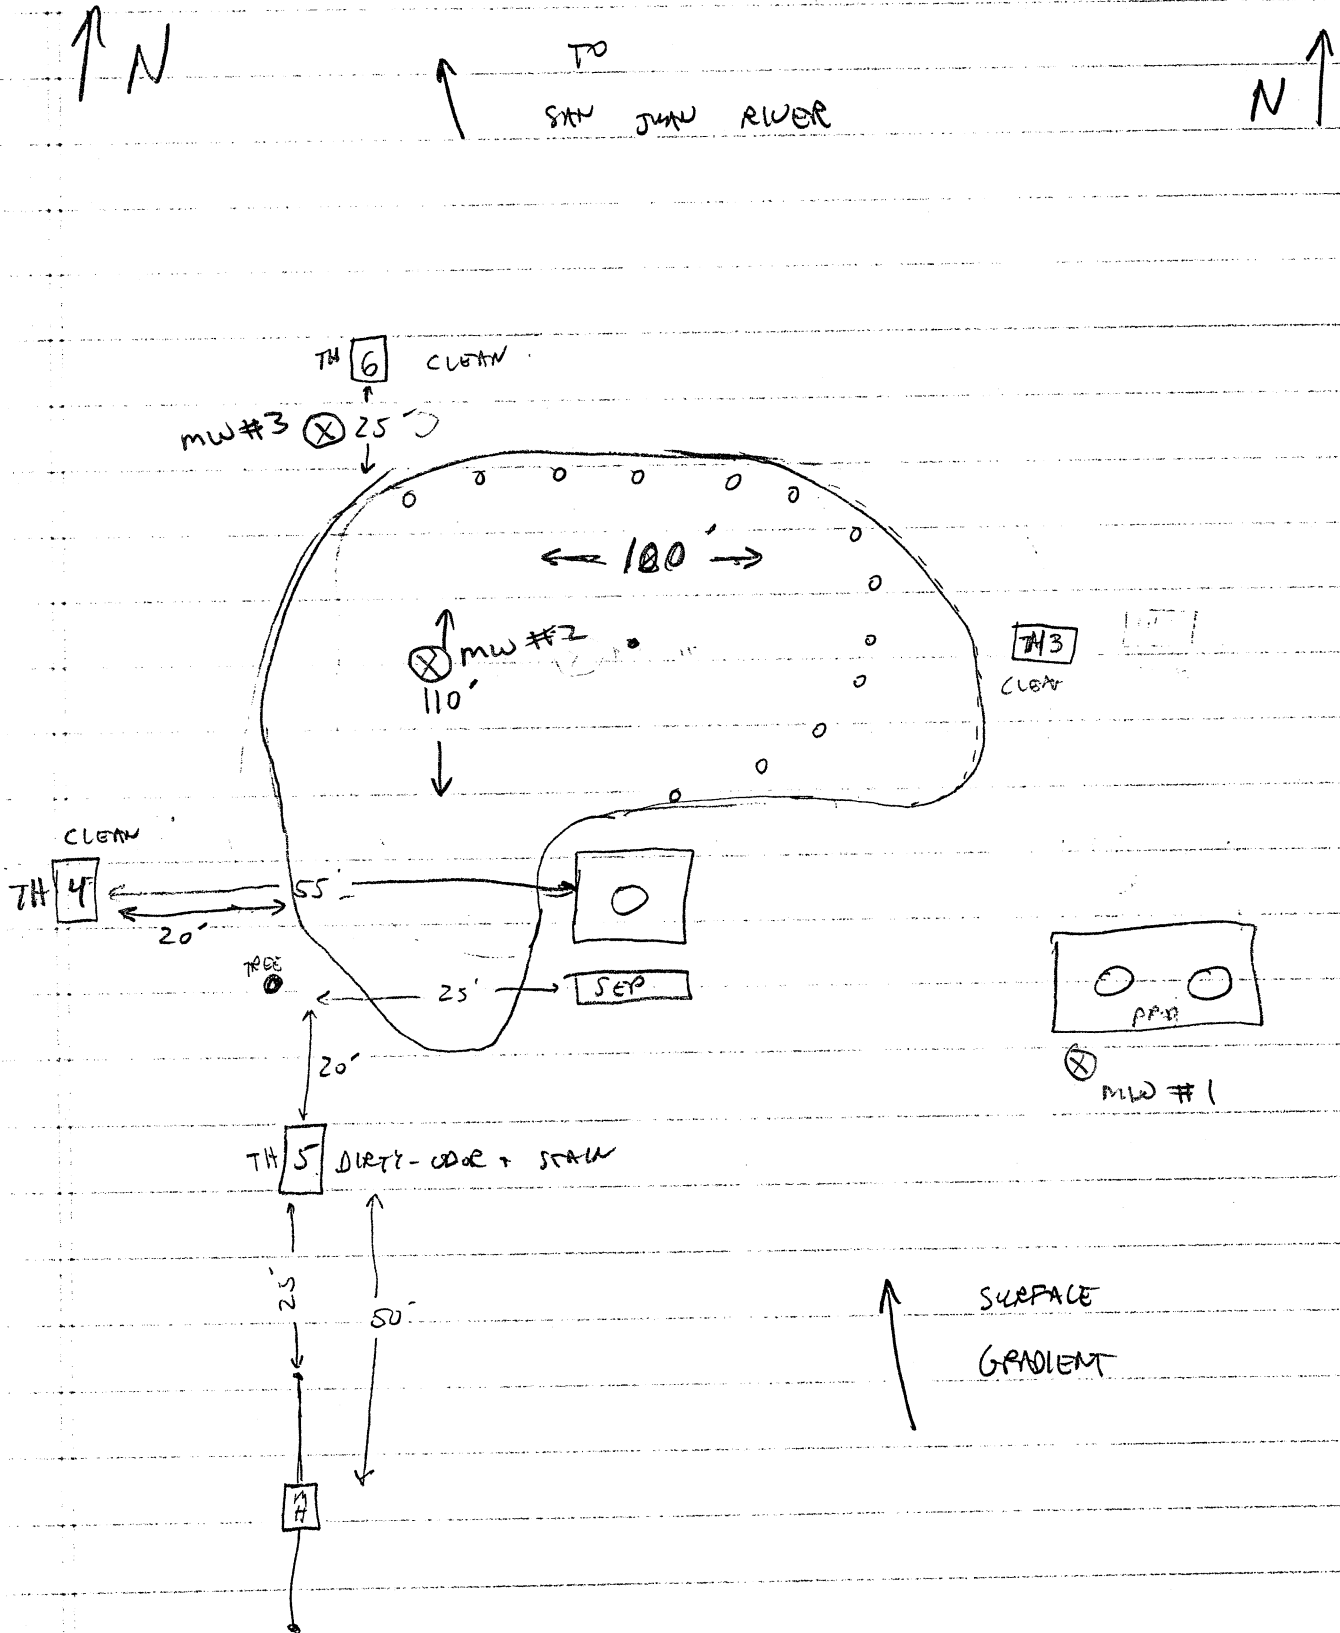 N
TO
SAN JUAN RIVER
N
TH 6 CLEAN
MW #3 25'
100'
MW #2
110'
TH3
CLEAN
CLEAN
TH 4
55'
20'
TREE
25'
SEP
20'
MW #1
TH 5 DIRTY - ODOR + STAIN
25'
50'
SURFACE
GRADIENT